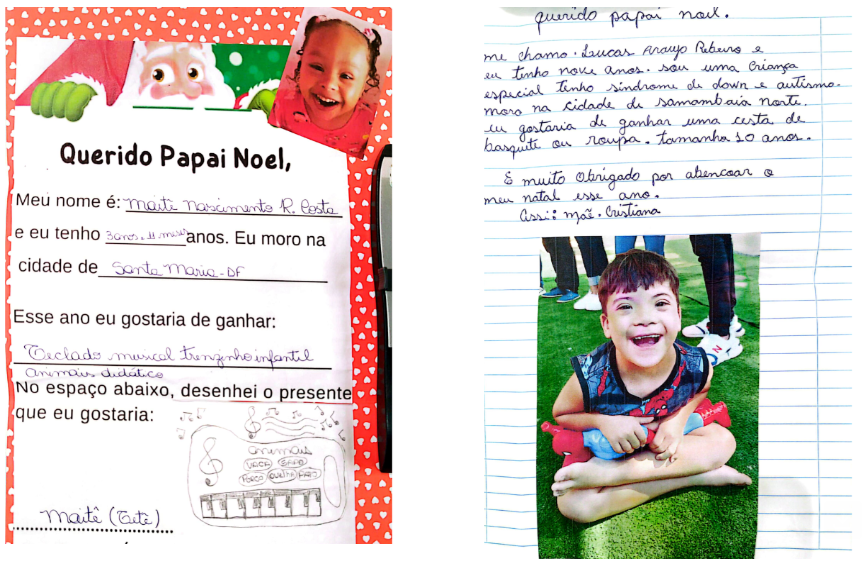 Querido Papai Noel,
Meu nome é: Maitê nascimento R. Costa
e eu tenho 3 anos, 11 meses anos. Eu moro na
cidade de Santa Maria-DF
Esse ano eu gostaria de ganhar:
Teclado musical trenzinho infantil
animais didático
No espaço abaixo, desenhei o presente
que eu gostaria:
animais
VACA SAPO
PORCO OVELHA PATO
Maitê (Tetê)
querido papai noel.
me chamo. Luucas Araujo Rebeiro e
eu tenho nove anos. sou uma Criança
especial tenho síndrome de down e autismo.
moro na cidade de samambaia norte.
eu gostaria de ganhar uma cesta de
basquite ou roupa. tamanha 10 anos.
E muito obrigado por abencoar o
meu natal esse ano.
Assi: mãe. Cristiana